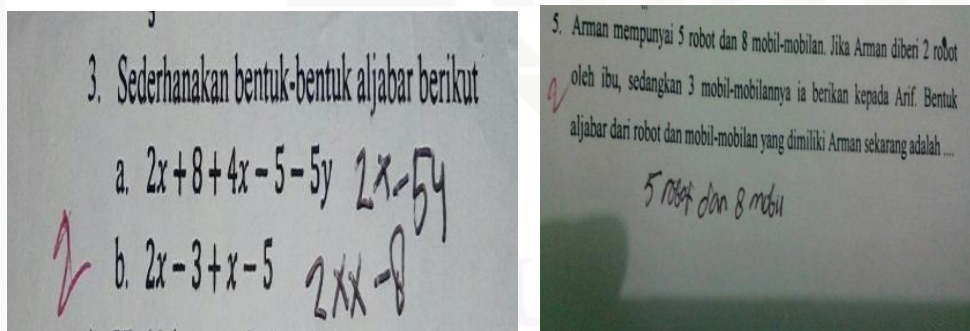 3. Sederhanakan bentuk-bentuk aljabar berikut
a. 2x + 8 + 4x - 5 - 5y 2x-5y
2 b. 2x - 3 + x - 5 2xx-8
5. Arman mempunyai 5 robot dan 8 mobil-mobilan. Jika Arman diberi 2 robot
2 oleh ibu, sedangkan 3 mobil-mobilannya ia berikan kepada Arif. Bentuk
aljabar dari robot dan mobil-mobilan yang dimiliki Arman sekarang adalah ....
5 robot dan 8 mobil